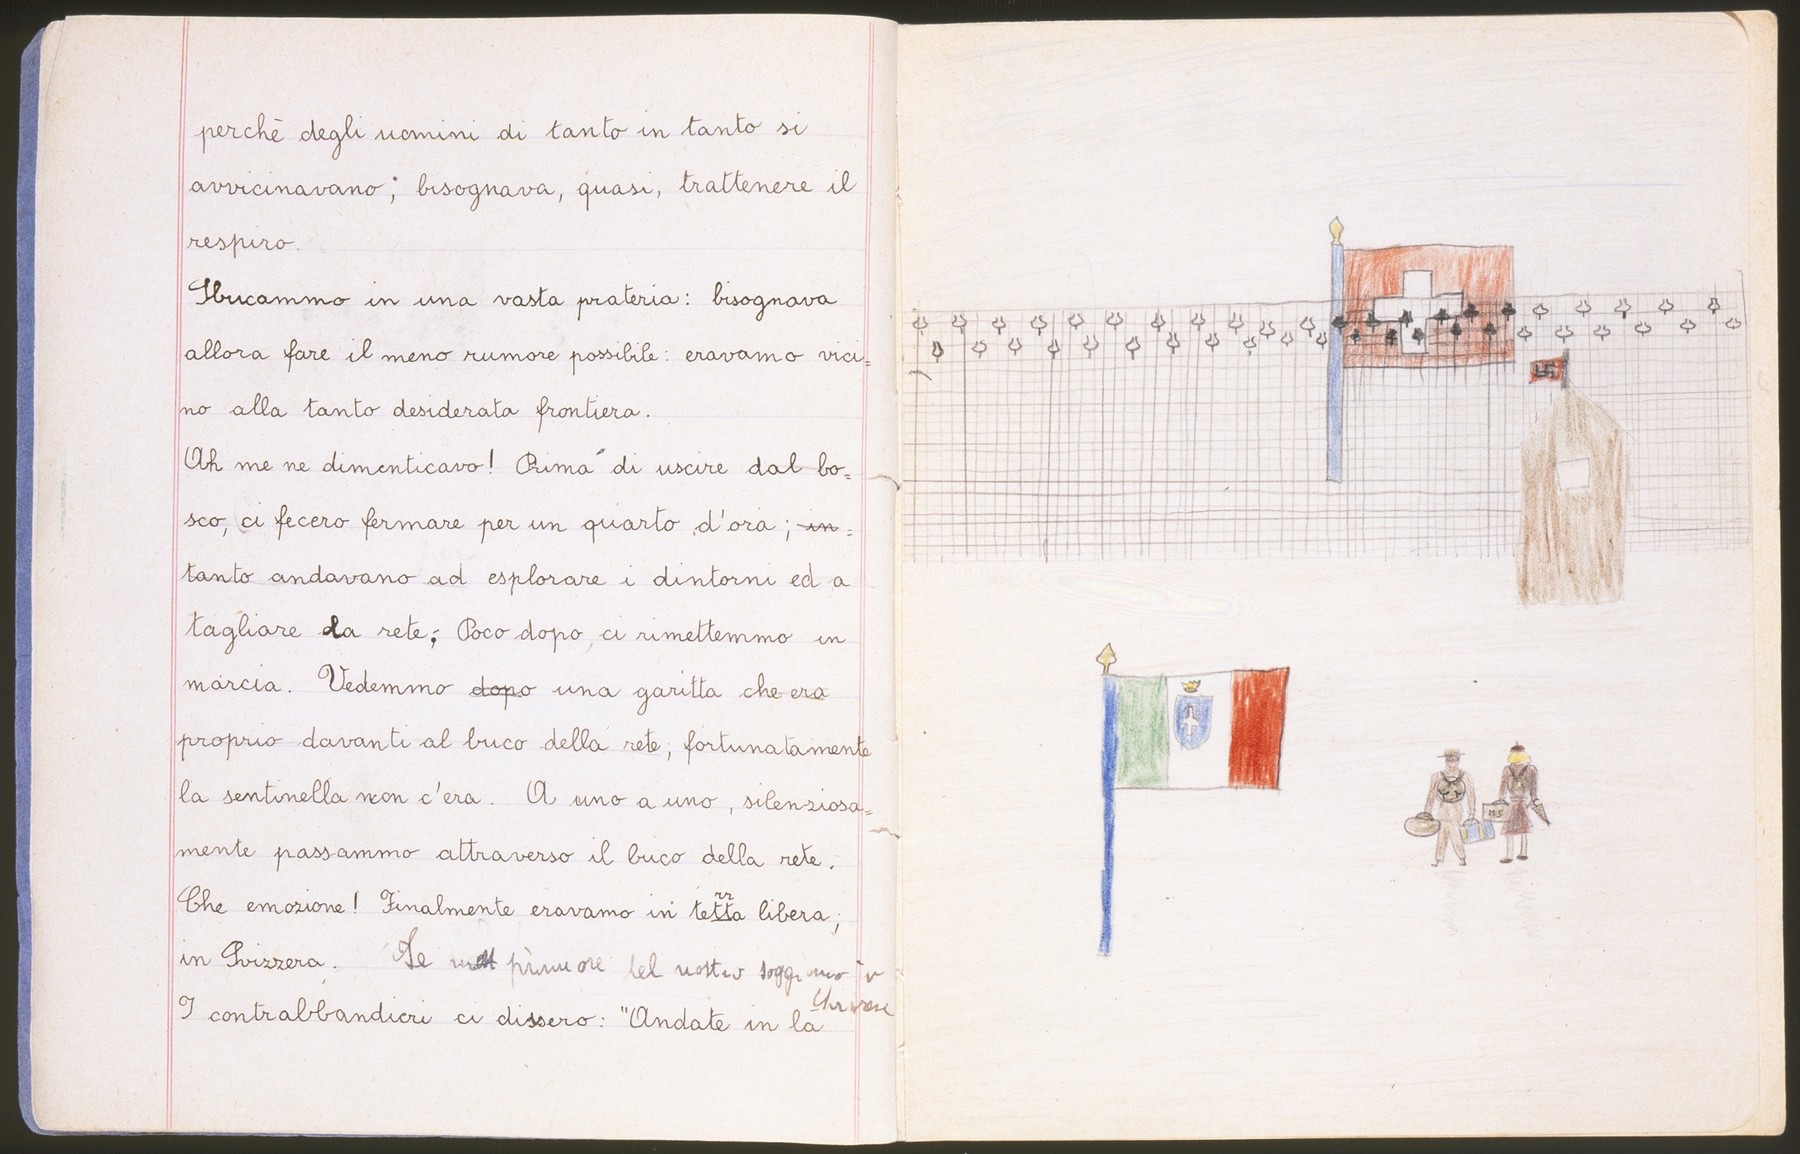 perchè degli uomini di tanto in tanto si
avvicinavano; bisognava, quasi, trattenere il
respiro.
Sbucammo in una vasta prateria: bisognava
allora fare il meno rumore possibile: eravamo vici=
no alla tanto desiderata frontiera.
Ah me ne dimenticavo! Prima di uscire dal bo=
sco, ci fecero fermare per un quarto d'ora; in=
tanto andavano ad esplorare i dintorni ed a
tagliare la rete; Poco dopo, ci rimettemmo in
marcia. Vedemmo dopo una garitta che era
proprio davanti al buco della rete; fortunatamente
la sentinella non c'era. A uno a uno, silenziosa=
mente passammo attraverso il buco della rete.
Che emozione! Finalmente eravamo in tetta libera;
rr
in Svizzera. Le prime ore del nostro soggiorno in
I contrabbandieri ci dissero: "Andate in la